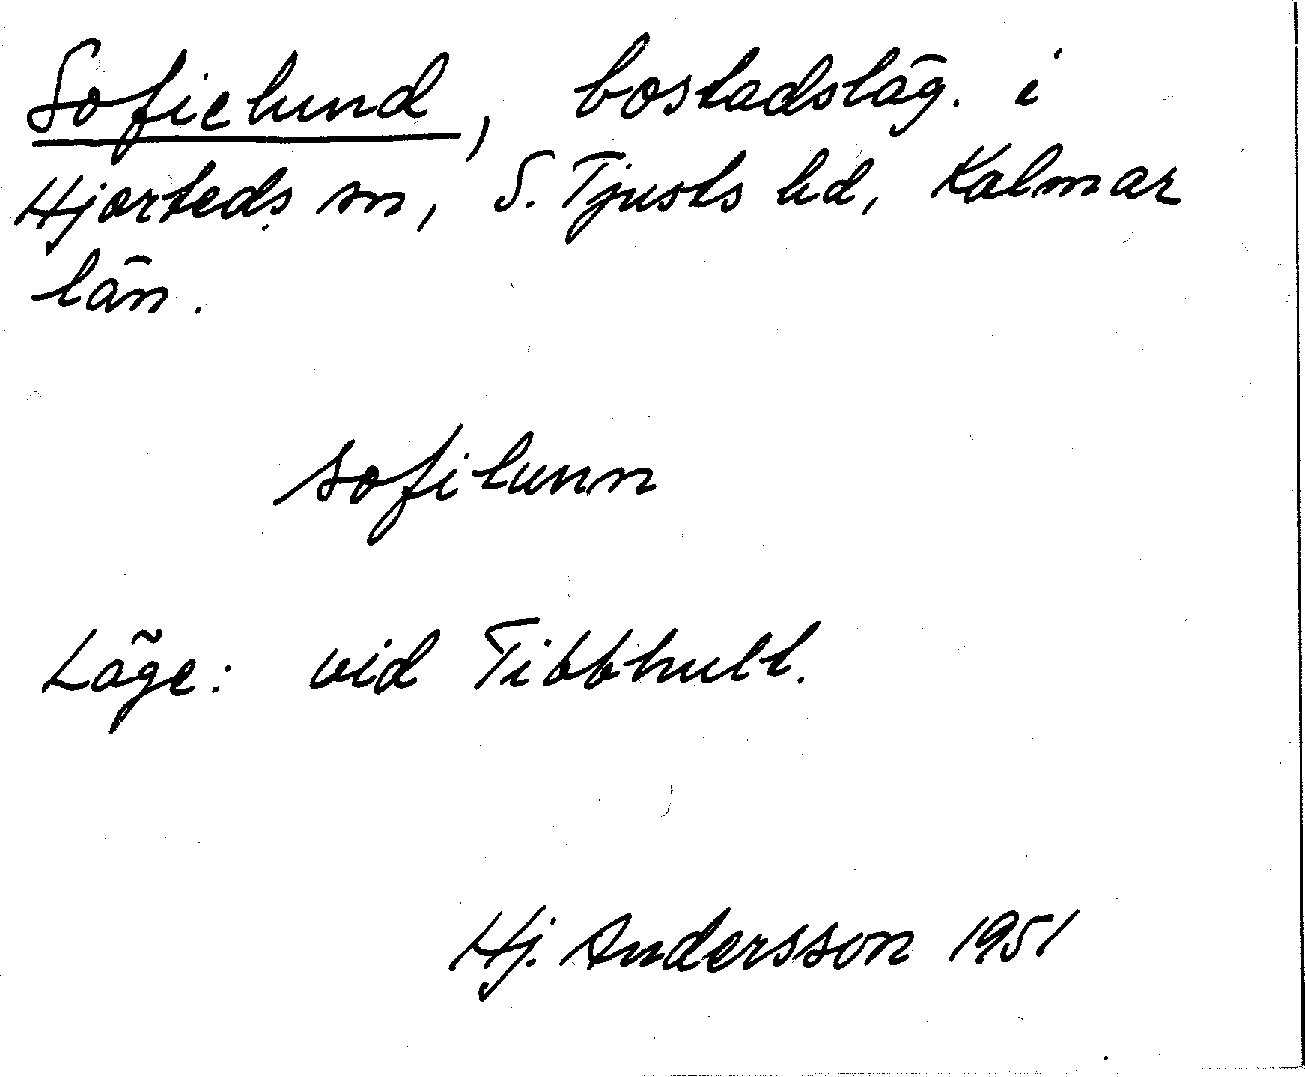 Sofielund, bostadsläg. i
Hjorteds sn, S. Tjusts hd, Kalmar
län.
sofilunn
Läge: vid Tibbhult.
Hj. Andersson 1951